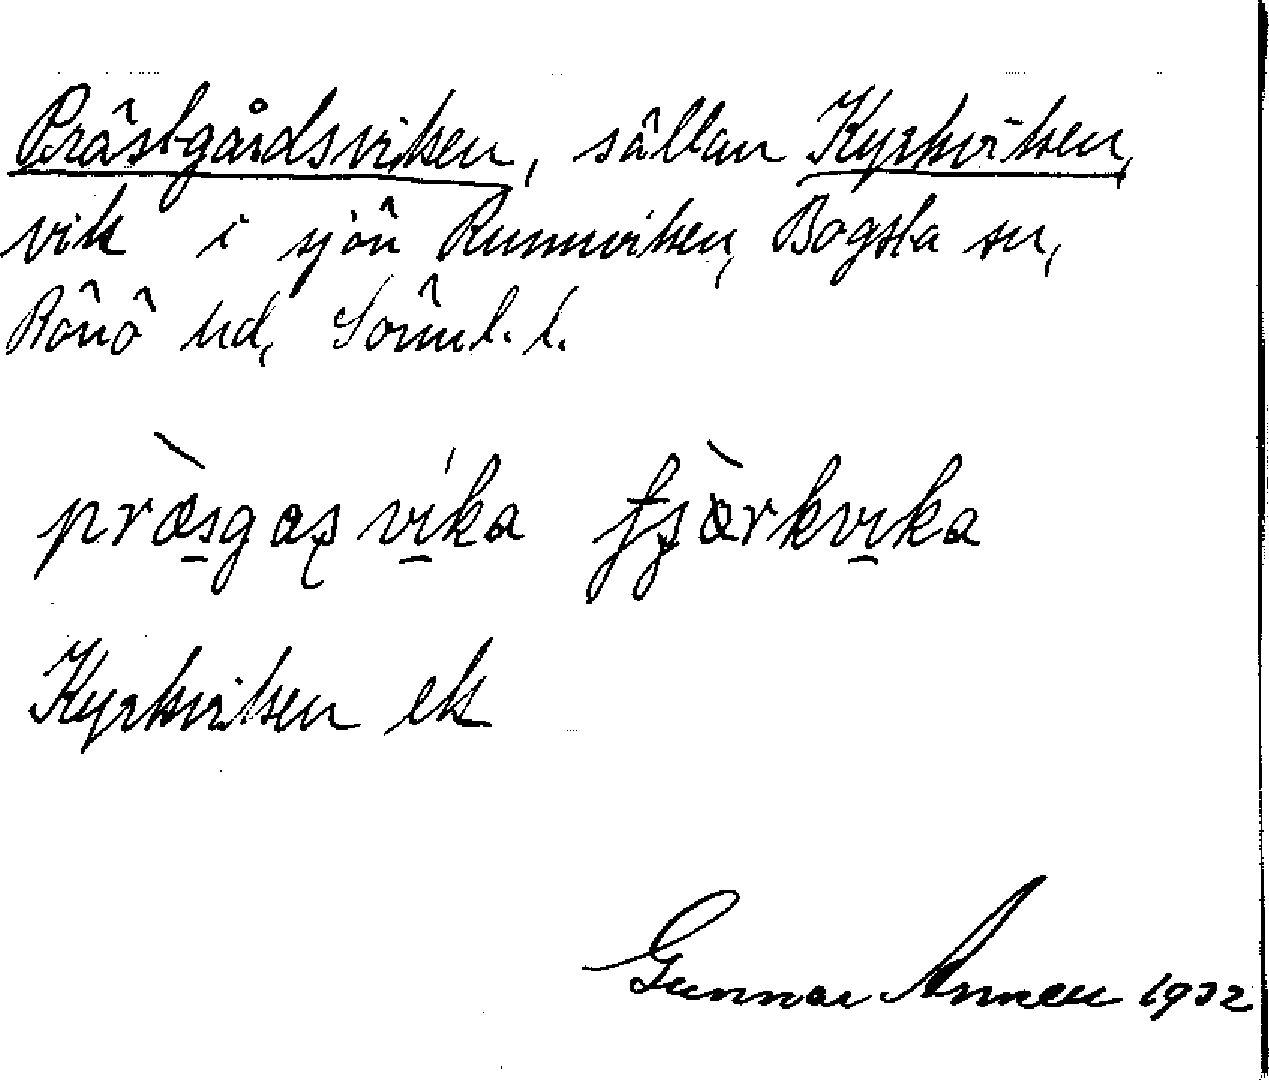 Prästgårdsviken, sällan Kyrkviken,
vik i sjön Runnviken, Bogsta sn,
Rönö hd, Sörml. l.
præ̀sgaʂvíka fʂæ̀rkvika
Kyrkviken ek
Gunnar 1932